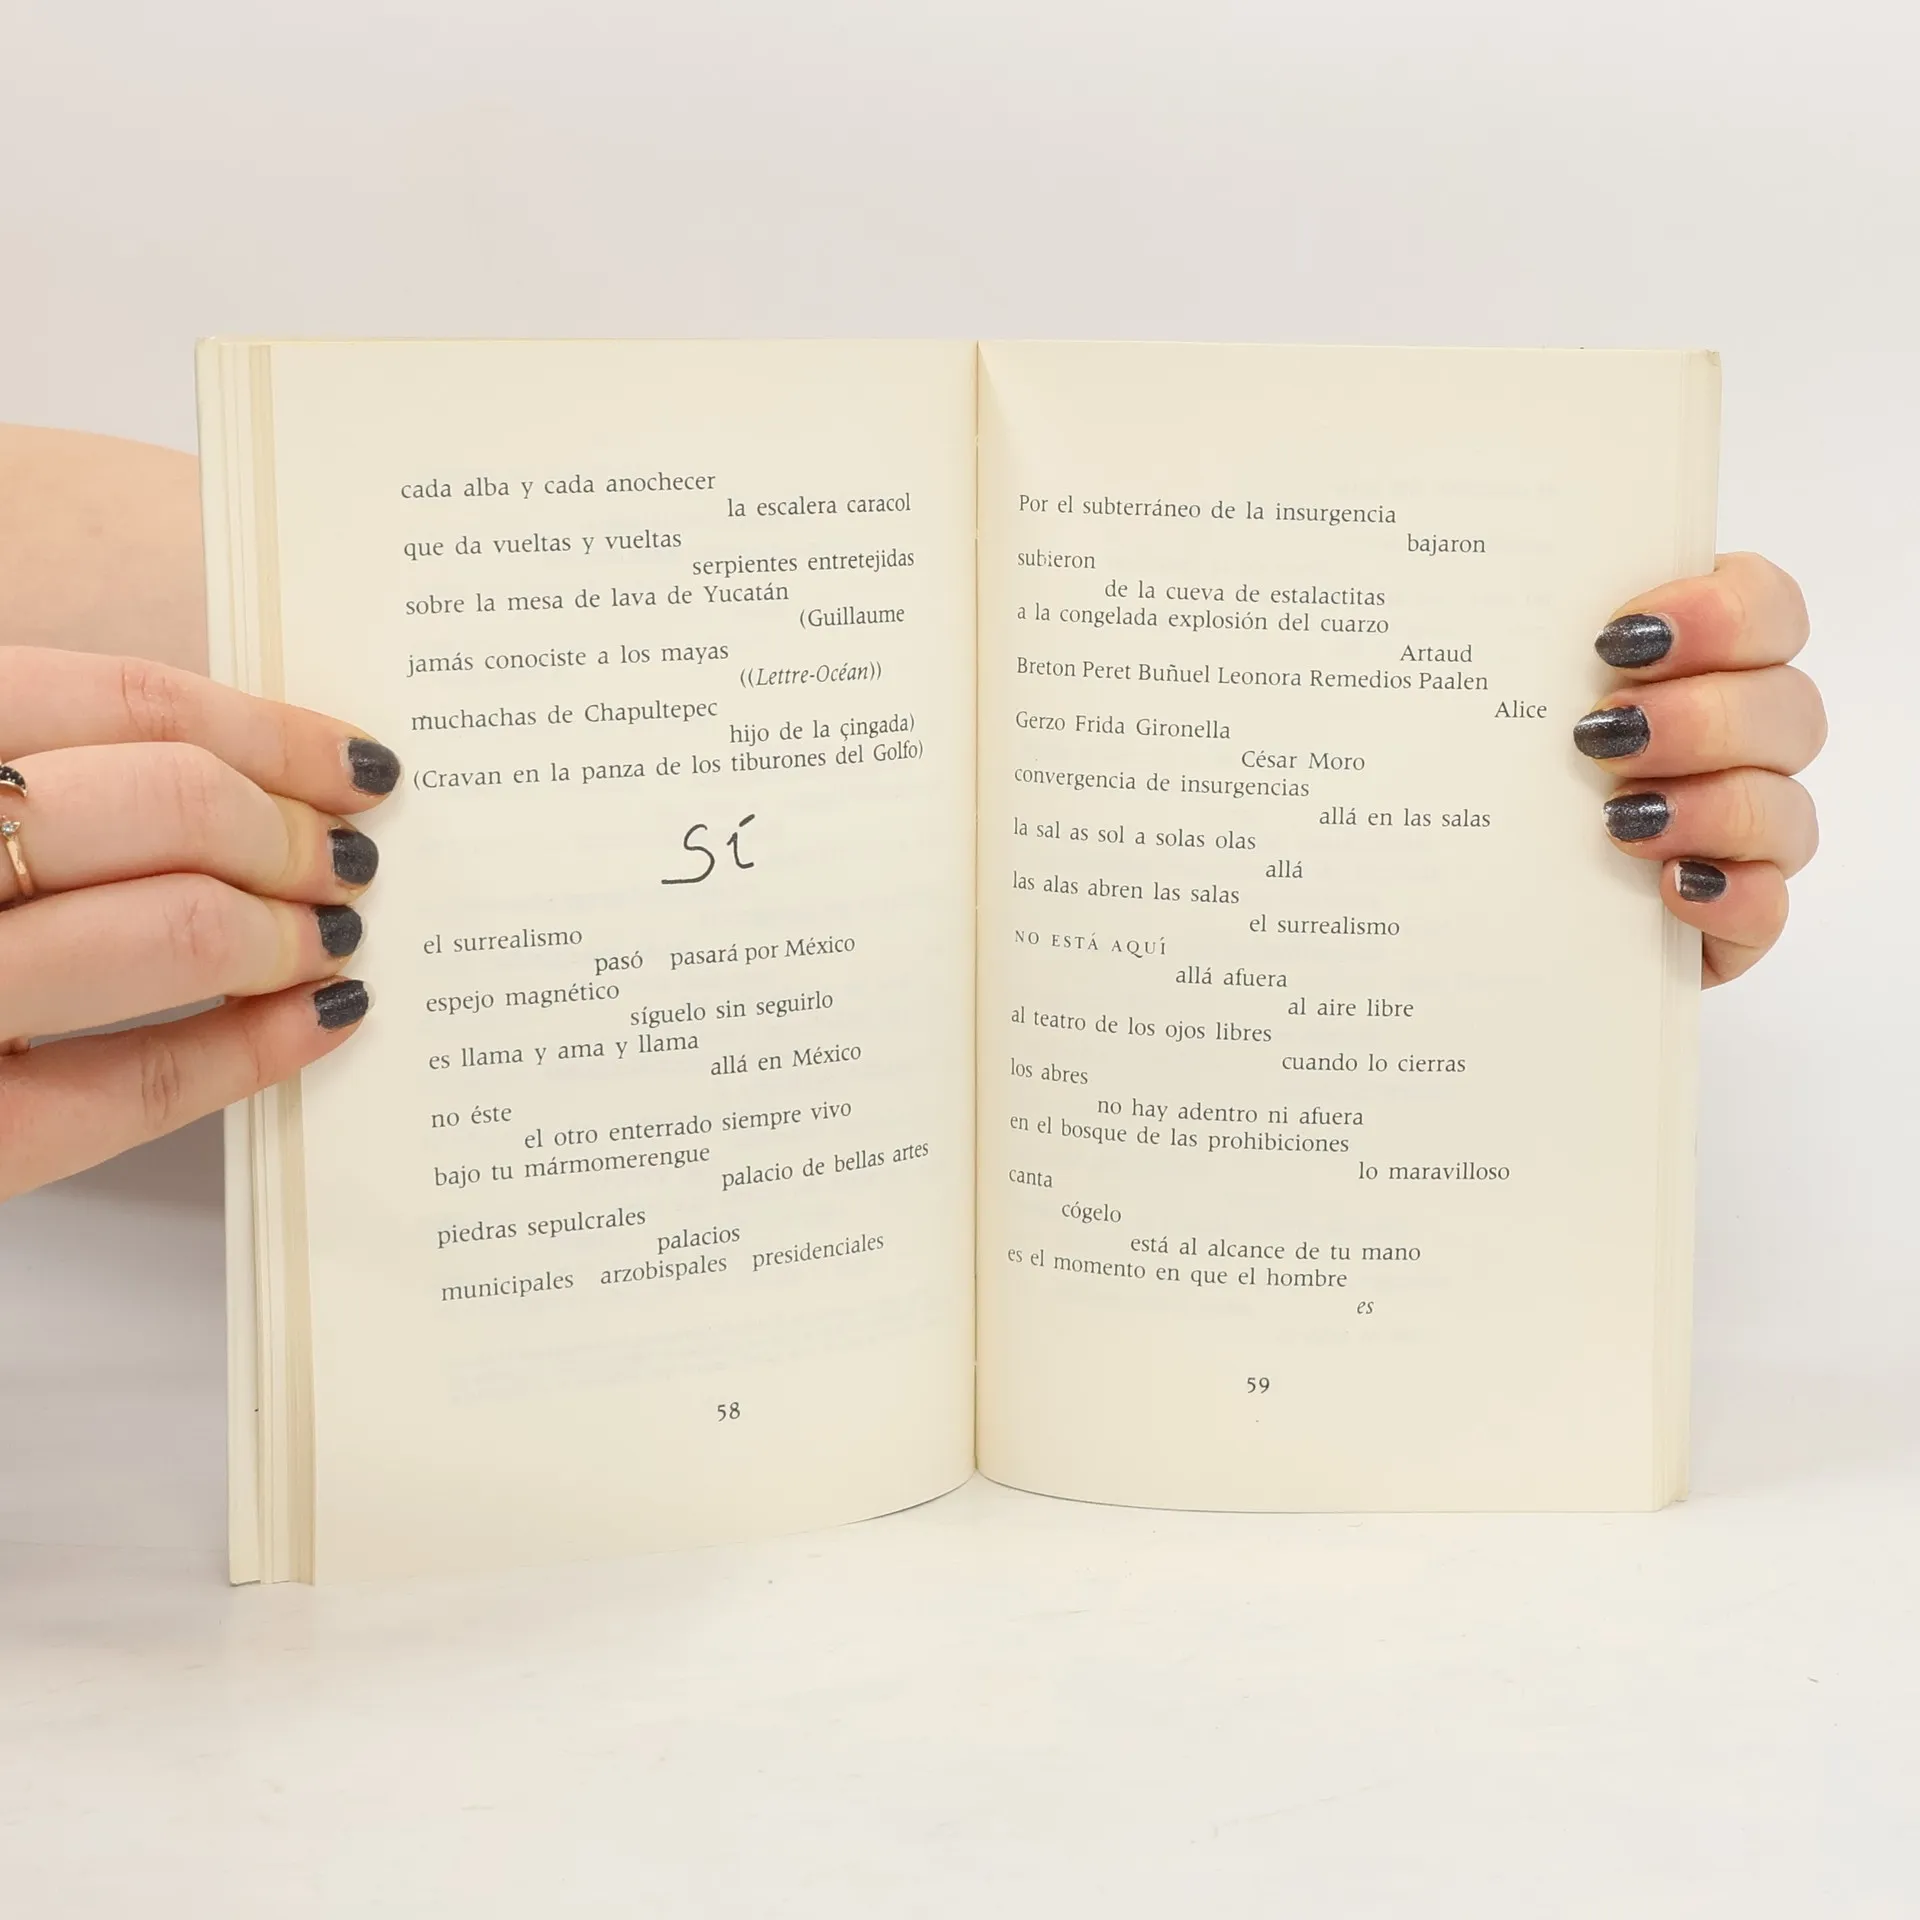 cada alba y cada anochecer
la escalera caracol
que da vueltas y vueltas
serpientes entretejidas
sobre la mesa de lava de Yucatán
(Guillaume
jamás conociste a los mayas
((Lettre-Océan))
muchachas de Chapultepec
hijo de la çingada)
(Cravan en la panza de los tiburones del Golfo)
Sí
el surrealismo
pasó pasará por México
espejo magnético
síguelo sin seguirlo
es llama y ama y llama
allá en México
no éste
el otro enterrado siempre vivo
bajo tu mármomerengue
palacio de bellas artes
piedras sepulcrales
palacios
municipales arzobispales presidenciales
58
Por el subterráneo de la insurgencia
bajaron
subieron
de la cueva de estalactitas
a la congelada explosión del cuarzo
Artaud
Breton Peret Buñuel Leonora Remedios Paalen
Alice
Gerzo Frida Gironella
César Moro
convergencia de insurgencias
allá en las salas
la sal as sol a solas olas
allá
las alas abren las salas
el surrealismo
NO ESTÁ AQUÍ
allá afuera
al aire libre
al teatro de los ojos libres
cuando lo cierras
los abres
no hay adentro ni afuera
en el bosque de las prohibiciones
lo maravilloso
canta
cógelo
está al alcance de tu mano
es el momento en que el hombre
es
59